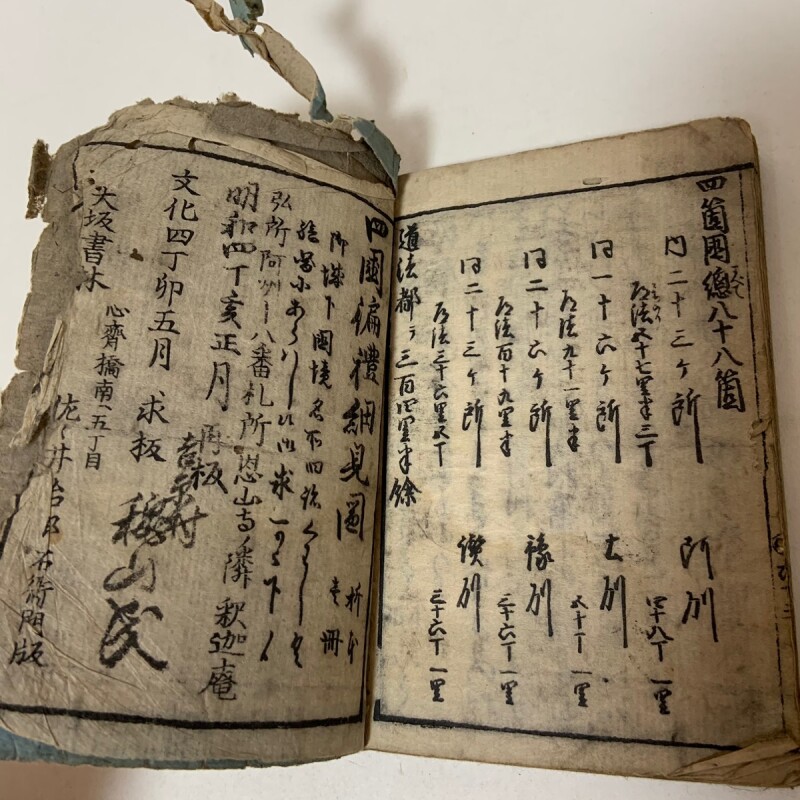 四箇國總八十八箇
同二十三ヶ所 阿州
道法五十七里半三丁 四十八丁一里
同一十六ヶ所 土州
道法九十一里半 五十丁一里
同二十六ヶ所 豫州
道法百十九里半 三十六丁一里
同二十三ヶ所
道法三十六里五丁 三十六丁一里
道法都 三百四里半餘
四國徧禮細見圖 折本 壱冊
御城下國境名所旧跡くはしく
弘所阿州十八番札所恩山寺隣釈迦庵
明和四丁亥正月 再板
文化四丁卯五月 求板
村
穐山氏
大坂書林
心齋橋南一五丁目
佐々井治郎右衛門版